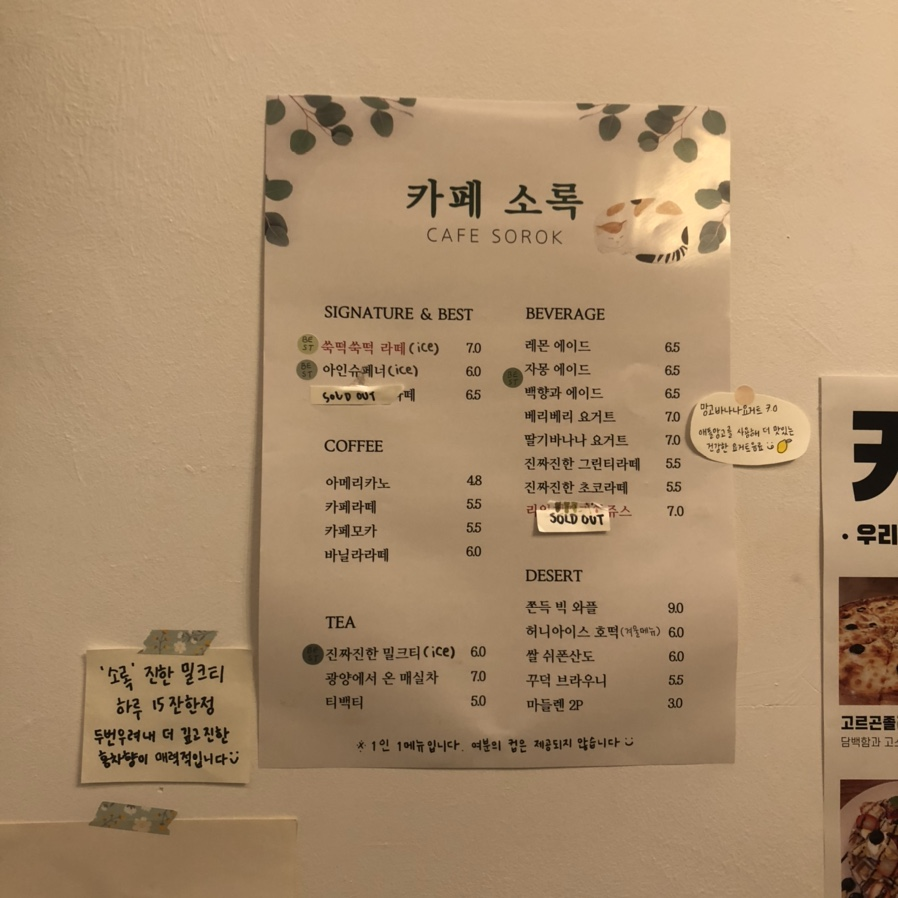 카페 소록
CAFE SOROK
SIGNATURE & BEST
BEST 쑥떡쑥떡 라떼(ice) 7.0
BEST 아인슈페너(ice) 6.0
SOLD OUT 6.5
COFFEE
아메리카노 4.8
카페라떼 5.5
카페모카 5.5
바닐라라떼 6.0
TEA
BEST 진짜진한 밀크티(ice) 6.0
광양에서 온 매실차 7.0
티백티 5.0
BEVERAGE
레몬 에이드 6.5
자몽 에이드 6.5
BEST
백향과 에이드 6.5
베리베리 요거트 7.0
딸기바나나 요거트 7.0
진짜진한 그린티라떼 5.5
진짜진한 초코라떼 5.5
쥬스 7.0
SOLD OUT
DESERT
쫀득 빅 와플 9.0
허니아이스 호떡(겨울메뉴) 6.0
쌀 쉬폰산도 6.0
꾸덕 브라우니 5.5
마들렌 2P 3.0
※ 1인 1메뉴입니다. 여분의 컵은 제공되지 않습니다
망고바나나요거트 7.0
애플망고를 사용해 더 맛있는
건강한 요거트음료
'소록' 진한 밀크티
하루 15잔한정
두번우려내 더 깊고진한
홍차향이 매력적입니다
· 우리
고르곤졸
담백함과 고소